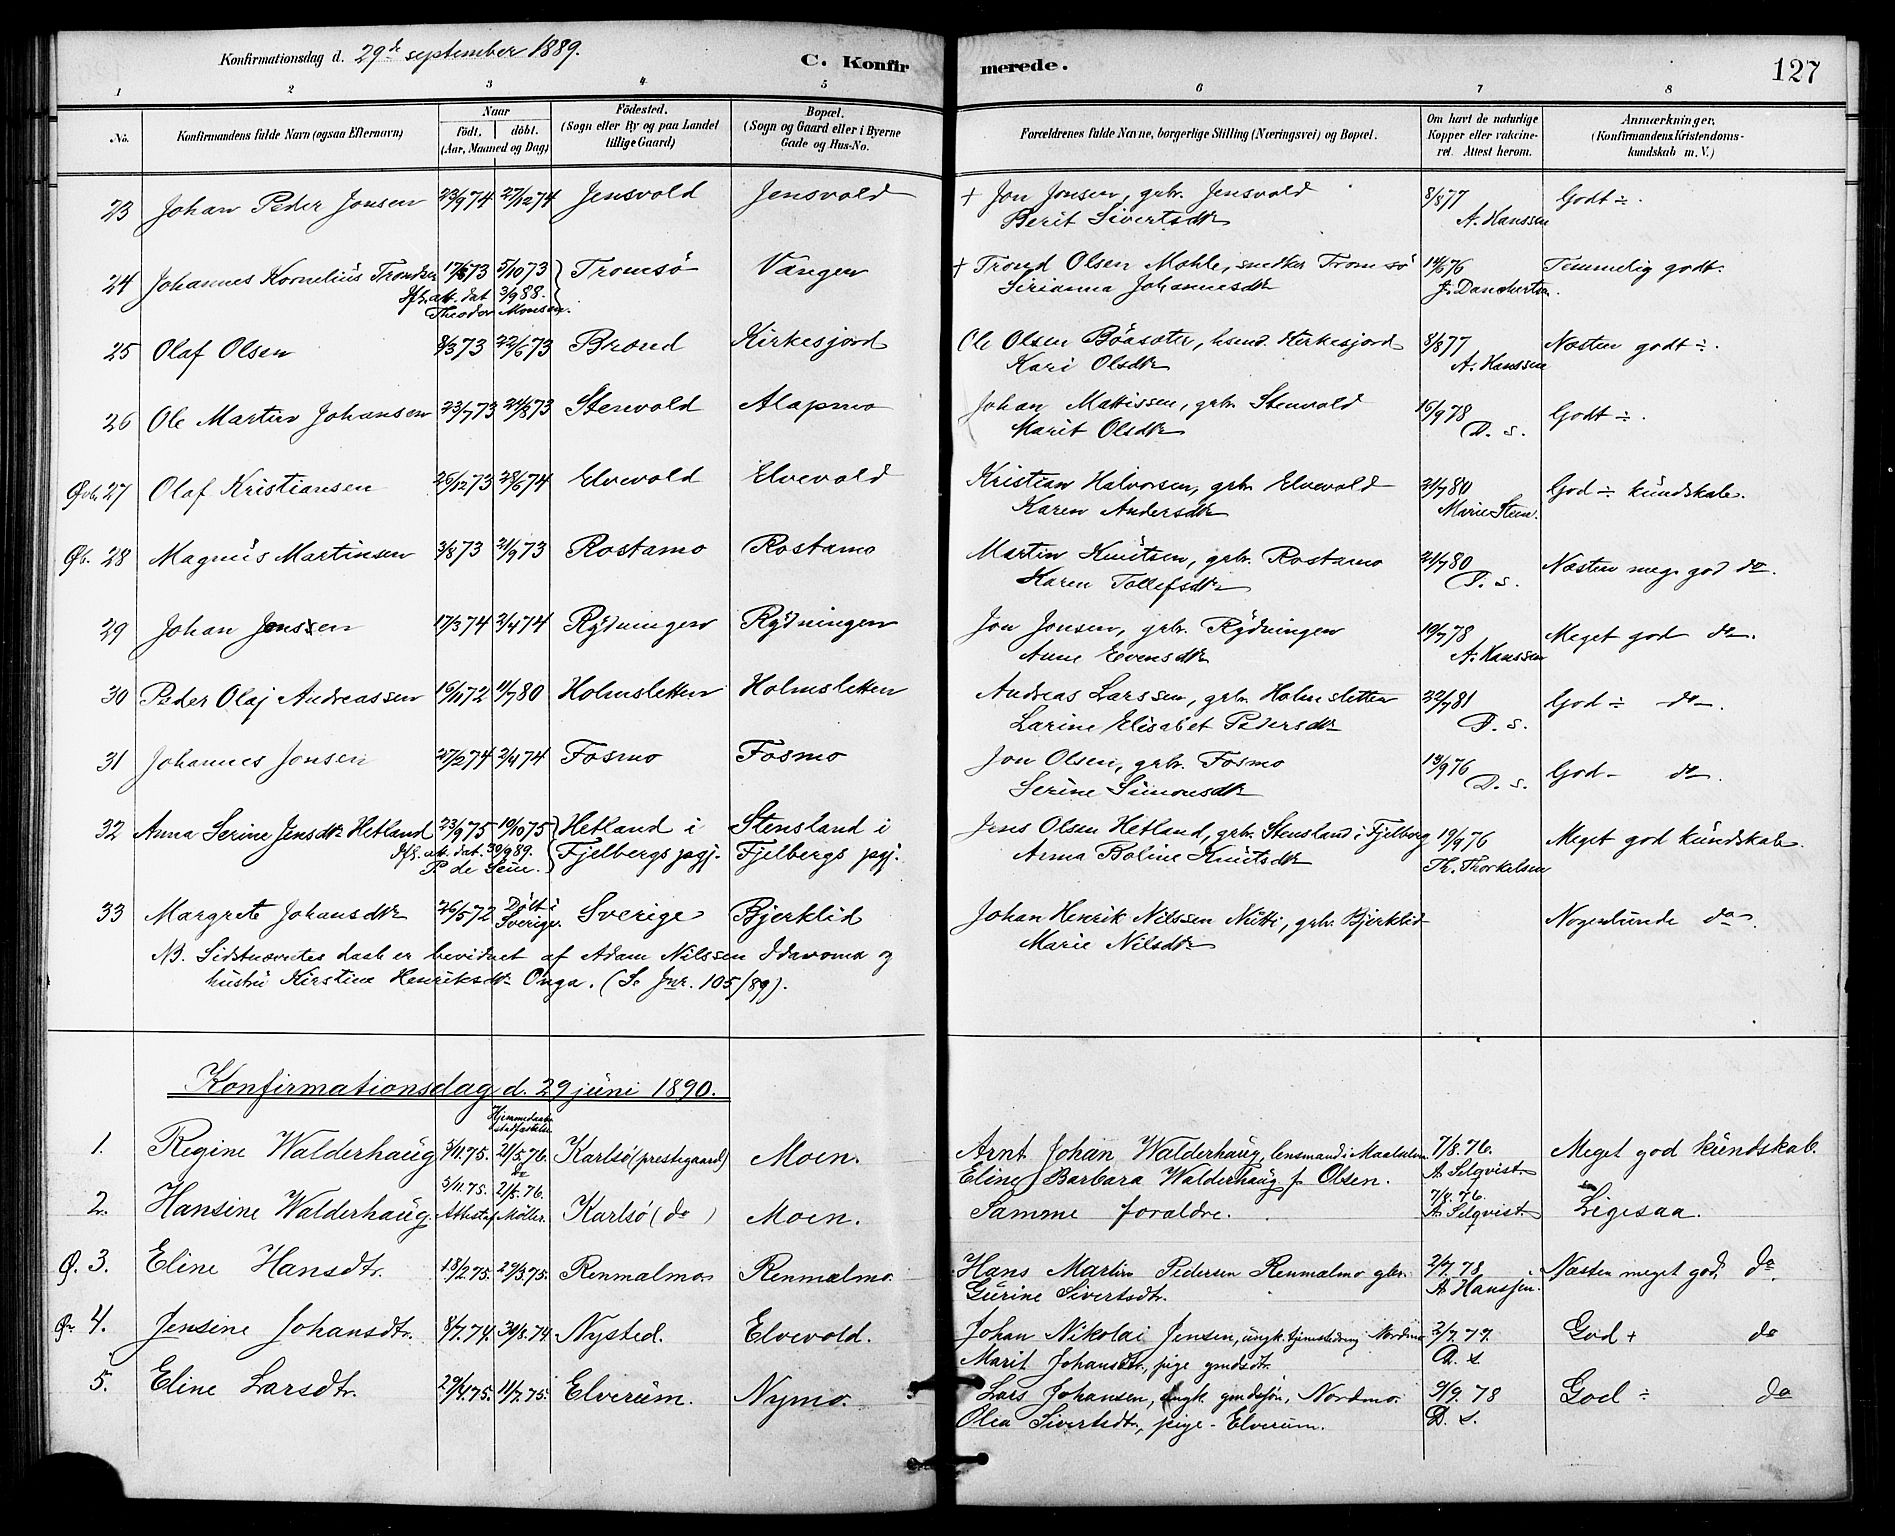 Konfirmationsdag d. 29de september 1889.
C. Konfirmerede.
127
1 2 3 4 5 6 7 8
No.
Konfirmandens fulde Navn (ogsaa Efternavn)
Naar
födt. döbt.
(Aar, Maaned og Dag)
Födested.
(Sogn eller By og paa Landet
tillige Gaard)
Bopæl.
(Sogn og Gaard eller i Byerne
Gade og Hus-No.
Forældrenes fulde Navne, borgerlige Stilling (Næringsvei) og Bopæl.
Om havt de naturlige
Kopper eller vakcine-
ret. Attest herom.
Anmærkninger,
(Konfirmandens Kristendoms-
kundskab m. V.)
23 Johan Peder Jonsen 23/9 74 27/12 74 Jensvold Jensvold + Jon Jonsen, grbr. Jensvold 8/8 77 Godt ÷.
Berit Sivertsdtr A. Hanssen
24 Johannes Kornelius Trondsen 17/6 73 5/10 73 Tromsö Vangen + Trond Olsen Mohle, snedker Tromsö 14/6 76 Temmelig godt.
Dfs. att. dat 3/9 88. Sirianna Johannesdtr J. Danchertsen.
Theodor Monsen.
25 Olaf Olsen 8/3 73 22/6 73 Brand Kirkesjord Ole Olsen Böasæter, hsmd. Kirkesjord 8/8 77 Næsten godt ÷.
Kari Olsdtr A. Hanssen
26 Ole Martin Johansen 23/7 73 24/8 73 Stenvold Alapmo Johan Mattissen, grbr. Stenvold 16/9 78 Godt ÷.
Marit Olsdtr D. s.
27 Olaf Kristiansen 26/12 73 28/6 74 Elvevold Elvevold Kristian Halvorsen, grbr. Elvevold 21/7 80 God ÷ kundskab.
Karen Andersdtr Marie Steen.
Øb. 28 Magnus Martinsen 3/8 73 21/9 73 Rostamo Rostamo Martin Knutsen, grbr. Rostamo 21/7 80 Næsten meg. god do.
Karen Tollefsdtr D. s.
29 Johan Jensen 17/3 74 2/4 74 Rydningen Rydningen Jon Jonsen, grbr. Rydningen 19/7 78 Meget god do.
Anne Evensdtr A. Hanssen
30 Peder Olaj Andreassen 16/11 72 11/7 80 Holmsletten Holmsletten Andreas Larssen, grbr. Holmsletten 22/7 81 God ÷ do.
Larine Elisabet Pedersdtr D. s.
31 Johannes Jonsen 27/2 74 2/4 74 Fosmo Fosmo Jon Olsen, grbr. Fosmo 13/9 76 God - do.
Serine Simonsdtr D. s.
32 Anna Serine Jensdtr Hetland 23/9 75 19/10 75 Hetland i Stensland i Jens Olsen Hetland, grbr. Stensland i Fjelberg 19/9 76 Meget god kundskab.
Dfs. att. dat. 30/9 89. Fjelbergs pgj. Fjelbergs pgj. Anna Boline Knutsdtr Th. Thorkelsen
P. de Seue.
33 Margrete Johansdtr 26/5 72 Döbt i Sverige. Sverige Bjerklid Johan Henrik Nilssen Nutti, grbr. Bjerklid Nogenlunde do.
Marie Nilsdtr
NB. Sidstnævntes daab er bevidnet af Adam Nilssen Idavoma og
hustru Kirstine Henriksdtr Onga. (S. Jnr. 105/89).
Konfirmationsdag d. 29 juni 1890.
Hjemmedaaben
stadfæstelse
1. Regine Walderhaug 3/11.75. 21/5.76. Karlsö (prestegaard) Moen. Arnt Johan Walderhaug, lensmand i Maalselven 7/8.76. Meget god kundskab.
do Eline Barbara Walderhaug f. Olsen. A. Selqvist.
2. Hansine Walderhaug 3/11.75. 21/5.76. Karlsö (do) Moen. Samme foraldre. 7/8.76. Ligesaa.
Attest af Möller. A. Selqvist.
Ø. 3. Eline Hansdtr. 18/2.75. 29/3.75. Renmælmo Renmælmo. Hans Martin Pedersen Renmælmo gbr. 2/7.78. Næsten meget god. do
Gurine Sivertsdtr. A. Hanssen.
4. Jensine Johansdtr. 8/7.74. 30/8.74 Nysted. Elvevold. Johan Nikolai Jensen, ungk. tjenestedreng Nordmo 2/7.77. God + do
Marit Johansdtr., pige gmdsdtr. D. s.
5. Eline Larsdtr. 29/4.75. 11/7.75. Elverum. Nymo. Lars Johansen, ungk. gmdssön, Nordmo. 9/9.78 God ÷ do
Olea Sivertsdtr., pige - Elverum. D. s.